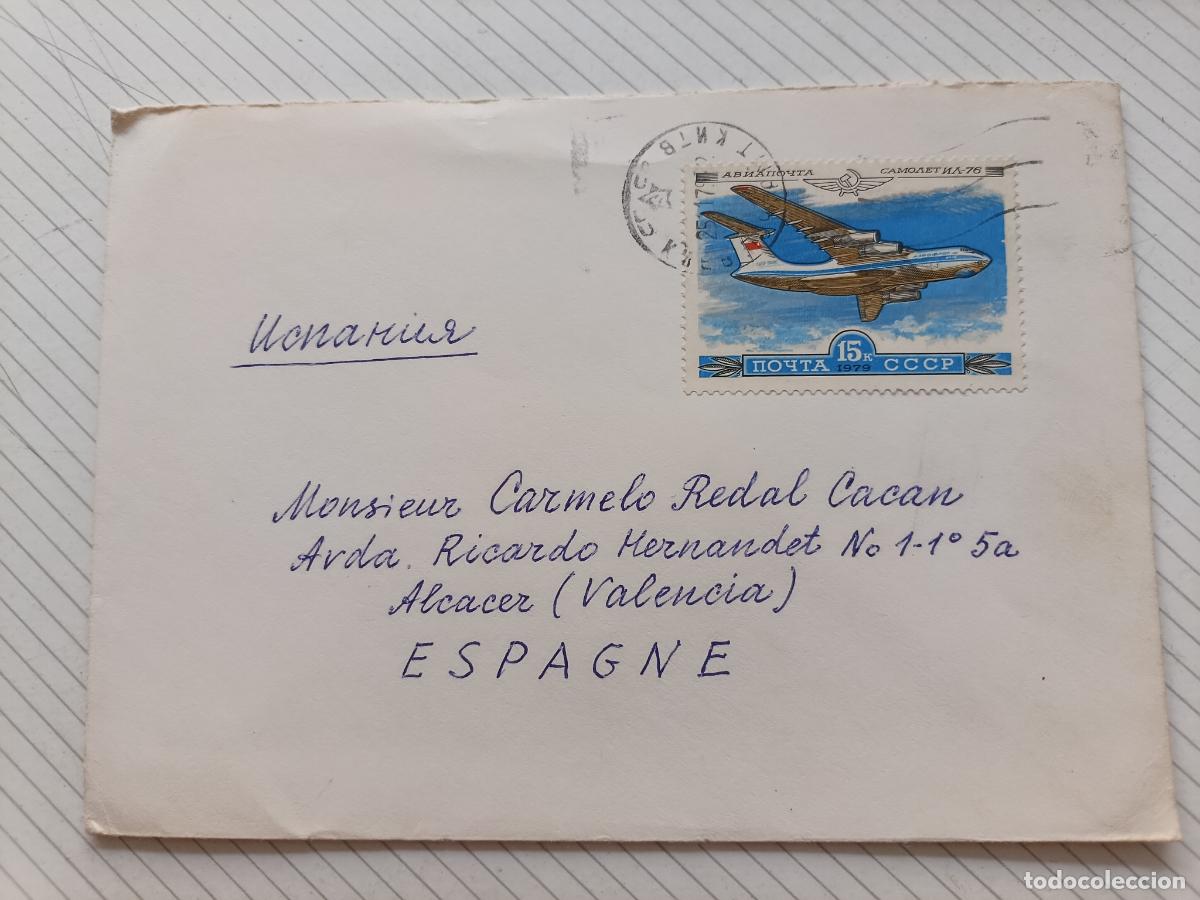 АВИАПОЧТА САМОЛЕТ ИЛ-76
15к
ПОЧТА 1979 СССР
Испания
Monsieur Carmelo Redal Cacan
Avda. Ricardo Hernandet No 1-1º 5a
Alcacer (Valencia)
ESPAGNE
todocoleccion